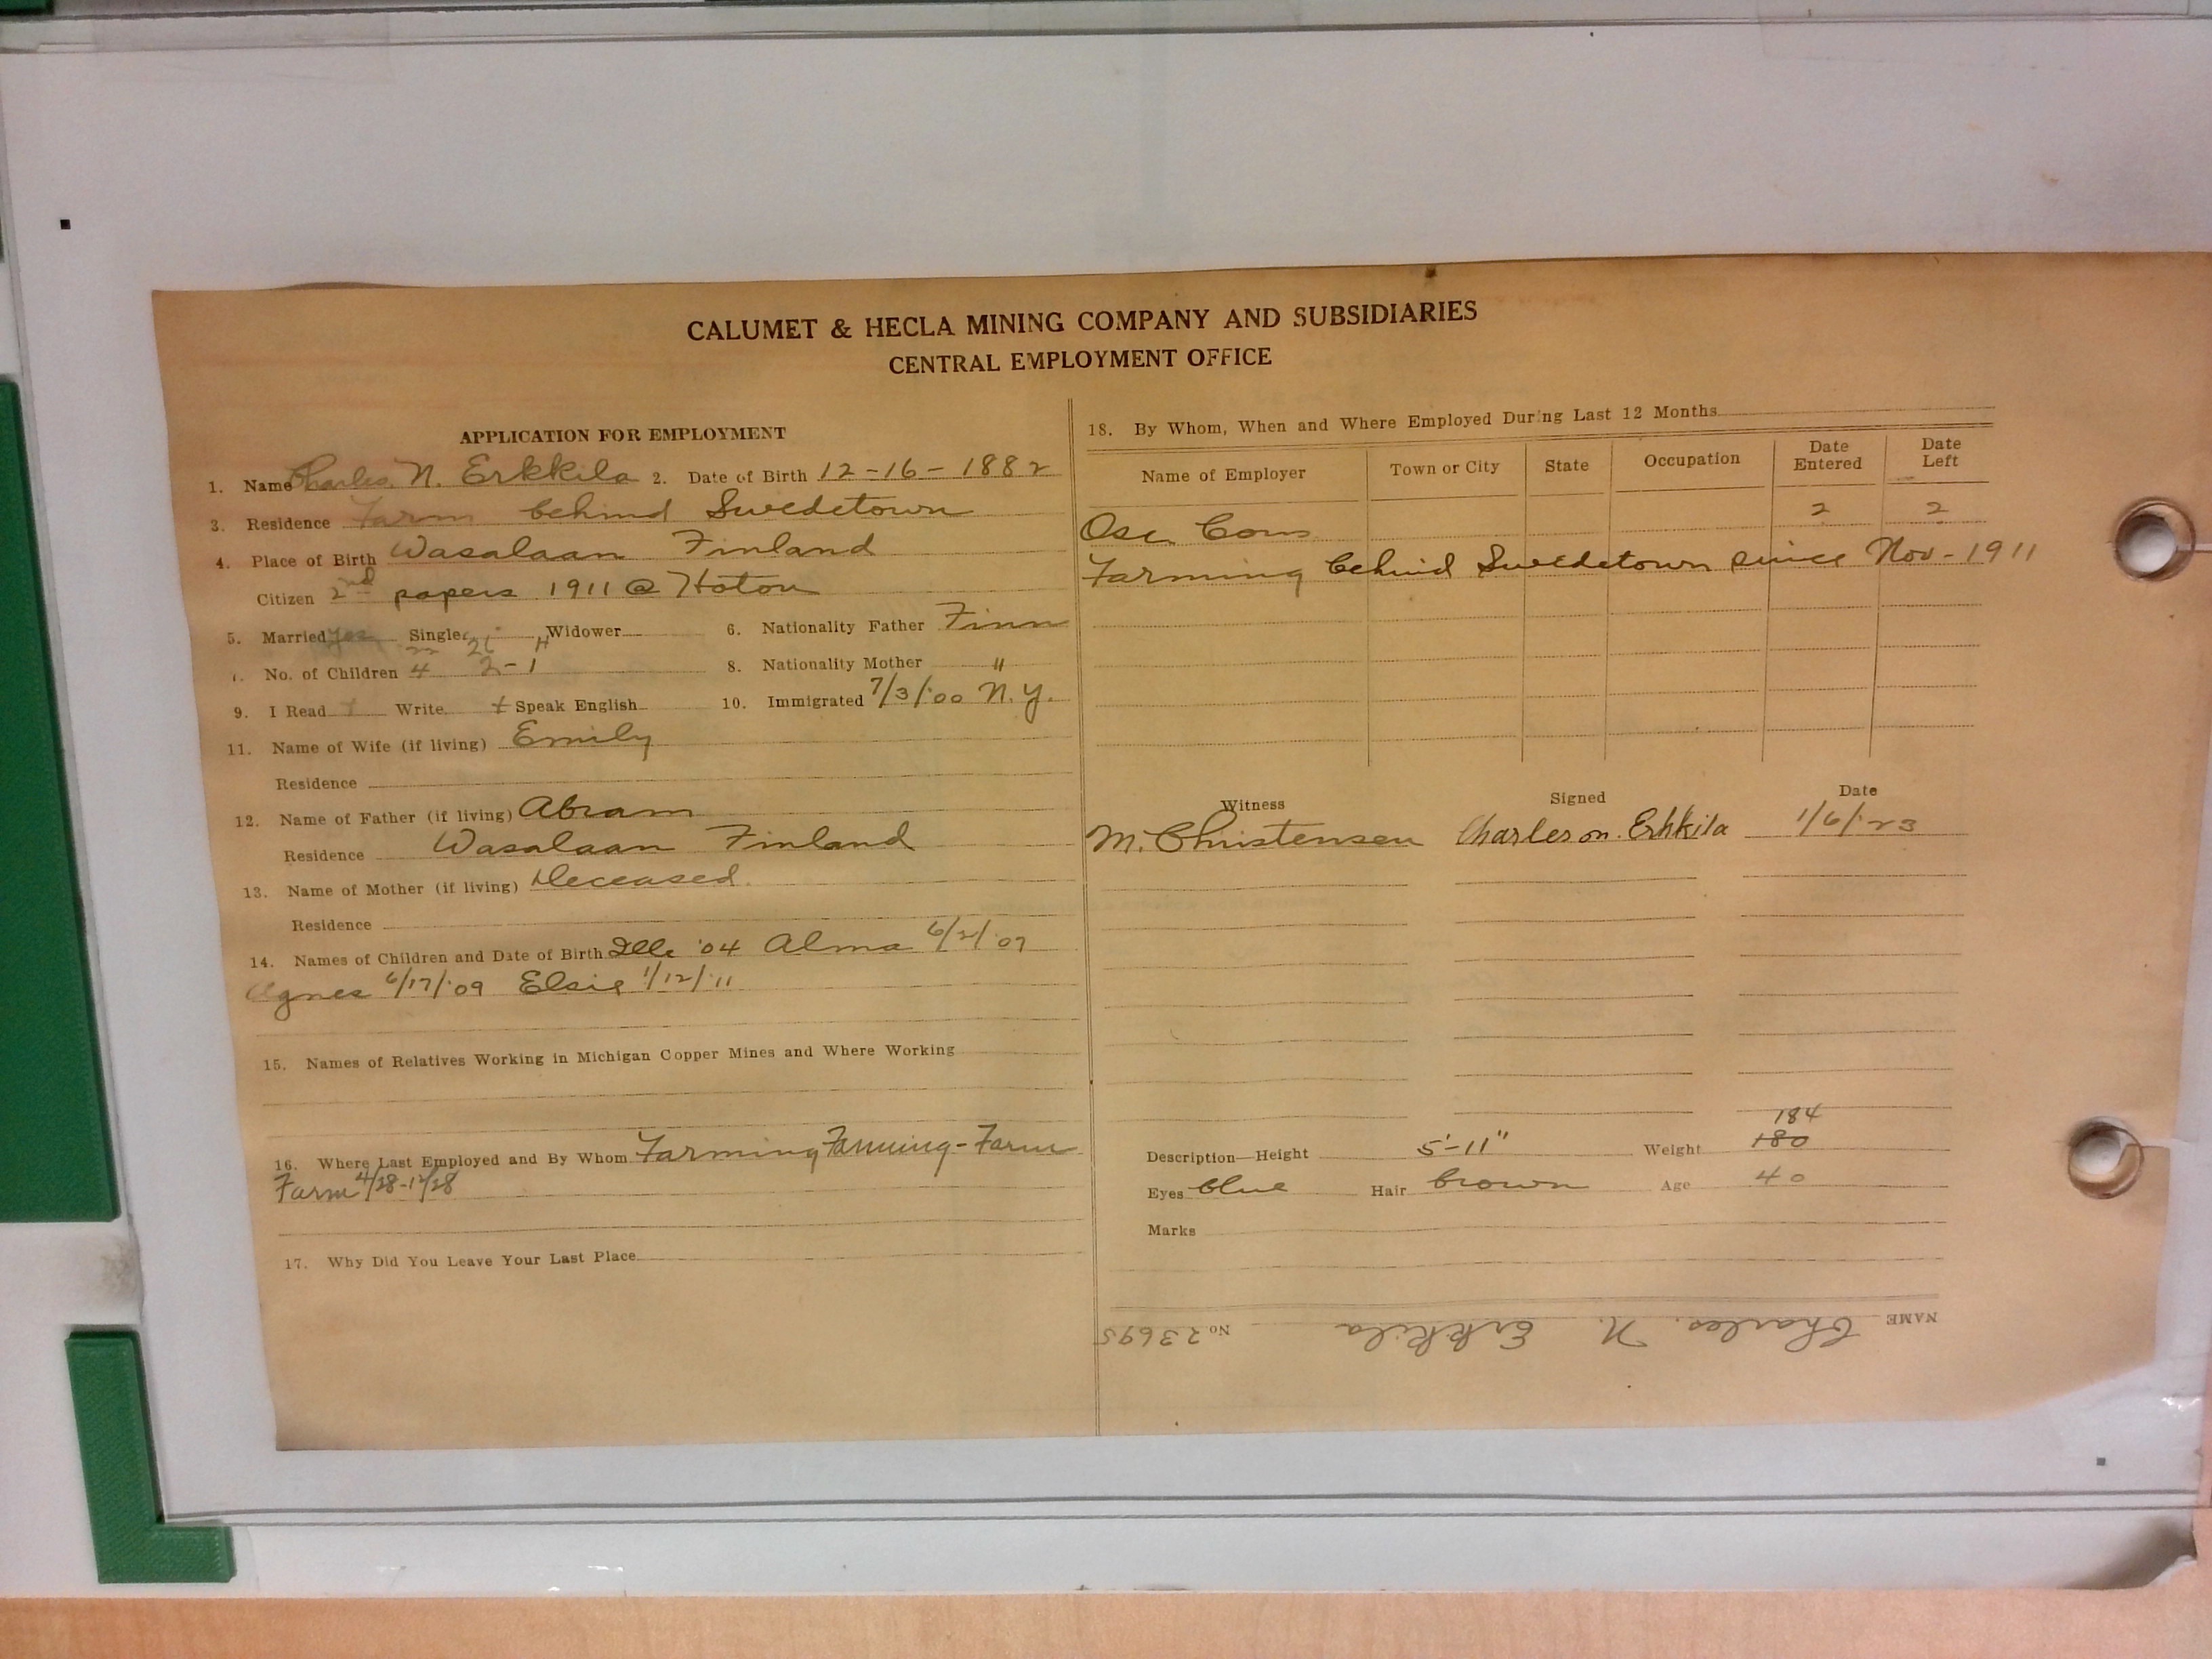 CALUMET & HECLA MINING COMPANY AND SUBSIDIARIES
CENTRAL EMPLOYMENT OFFICE
APPLICATION FOR EMPLOYMENT
1. Name Charles N. Erkkila 2. Date of Birth 12-16-1882
3. Residence Farm behind Swedetown
4. Place of Birth Wasalaan Finland
Citizen 2nd papers 1911 @ Hoton
5. Married yes Single Widower 6. Nationality Father Finn
7. No. of Children 4 2-1 8. Nationality Mother "
9. I Read Write Speak English 10. Immigrated 7/3/'00 N.Y.
11. Name of Wife (if living) Emily
Residence
12. Name of Father (if living) Abram
Residence Wasalaan Finland
13. Name of Mother (if living) Deceased
Residence
14. Names of Children and Date of Birth '04 Alma 6/2/'07
Agnes 6/17/'09 Elsie 1/12/'11
15. Names of Relatives Working in Michigan Copper Mines and Where Working
16. Where Last Employed and By Whom Farming Farming - Farm
Farm 4/28-12/28
17. Why Did You Leave Your Last Place
18. By Whom, When and Where Employed During Last 12 Months
Name of Employer Town or City State Occupation Date Entered Date Left
2 2
Osc. Cons
Farming behind Swedetown since Nov-1911
Witness Signed Date
M. Christensen Charles N. Erkkila 1/6/'23
184
Description—Height 5'-11" Weight 180
Eyes blue Hair brown Age 40
Marks
NAME Charles N. Erkkila No 23695